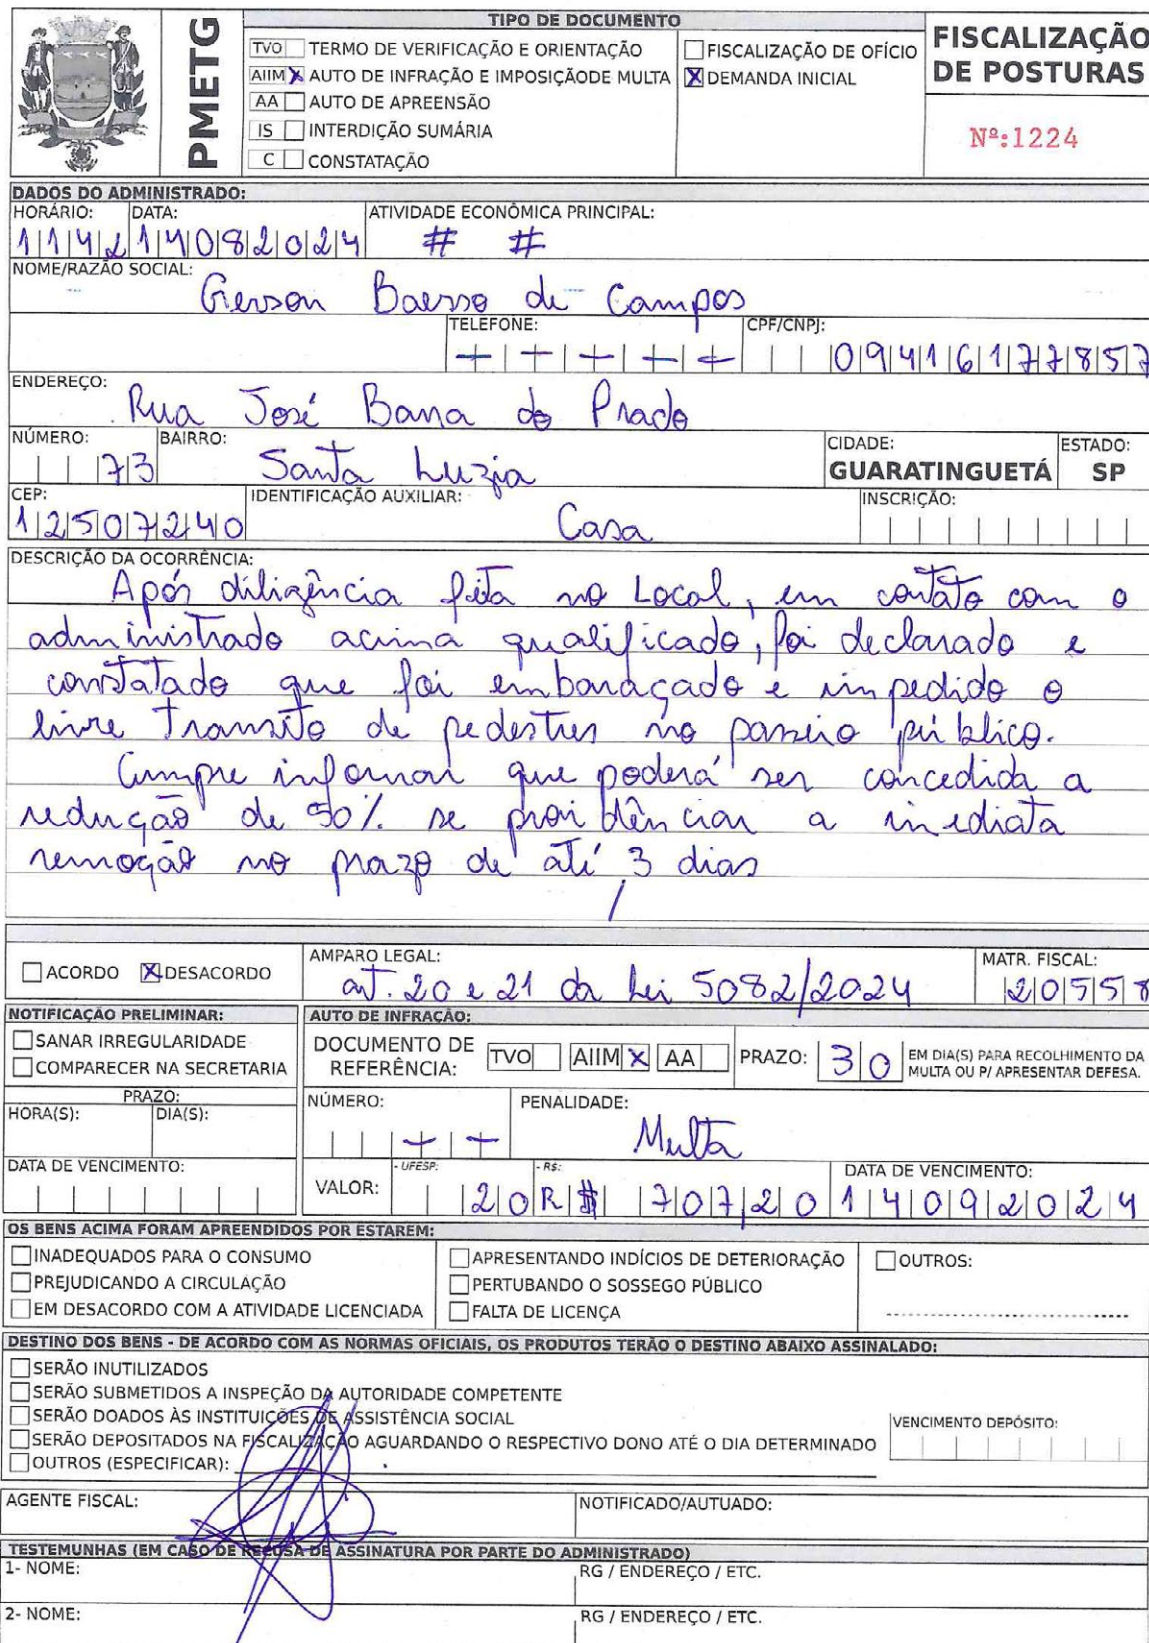 PMETG
TIPO DE DOCUMENTO
TVO TERMO DE VERIFICAÇÃO E ORIENTAÇÃO
AIIM X AUTO DE INFRAÇÃO E IMPOSIÇÃODE MULTA
AA AUTO DE APREENSÃO
IS INTERDIÇÃO SUMÁRIA
C CONSTATAÇÃO
FISCALIZAÇÃO DE OFÍCIO
X DEMANDA INICIAL
FISCALIZAÇÃO
DE POSTURAS
Nº:1224
DADOS DO ADMINISTRADO:
HORÁRIO: DATA: ATIVIDADE ECONÔMICA PRINCIPAL:
1142 14082024 # #
NOME/RAZÃO SOCIAL:
Gerson Baesso de Campos
TELEFONE: CPF/CNPJ:
09416177857
ENDEREÇO:
Rua José Barra do Prado
NÚMERO: BAIRRO: CIDADE: ESTADO:
73 Santa Luzia GUARATINGUETÁ SP
CEP: IDENTIFICAÇÃO AUXILIAR: INSCRIÇÃO:
12507240 Casa
DESCRIÇÃO DA OCORRÊNCIA:
Após diligência feita no Local, em contato com o
administrado acima qualificado, foi declarado e
constatado que foi embaraçado e impedido o
livre Transito de pedestres no passeio público.
Cumpre informar que poderá ser concedida a
redução de 50% se providênciar a imediata
remoção no prazo de até 3 dias
/
ACORDO X DESACORDO
AMPARO LEGAL:
art. 20 e 21 da Lei 5082/2024
MATR. FISCAL:
20558
NOTIFICAÇÃO PRELIMINAR:
SANAR IRREGULARIDADE
COMPARECER NA SECRETARIA
PRAZO:
HORA(S): DIA(S):
DATA DE VENCIMENTO:
AUTO DE INFRAÇÃO:
DOCUMENTO DE
REFERÊNCIA: TVO AIIM X AA
PRAZO: 30 EM DIA(S) PARA RECOLHIMENTO DA
MULTA OU P/ APRESENTAR DEFESA.
NÚMERO: PENALIDADE:
Multa
- UFESP: - R$: DATA DE VENCIMENTO:
VALOR: 20 R$ 707,20 14092024
OS BENS ACIMA FORAM APREENDIDOS POR ESTAREM:
INADEQUADOS PARA O CONSUMO
PREJUDICANDO A CIRCULAÇÃO
EM DESACORDO COM A ATIVIDADE LICENCIADA
APRESENTANDO INDÍCIOS DE DETERIORAÇÃO
PERTUBANDO O SOSSEGO PÚBLICO
FALTA DE LICENÇA
OUTROS:
DESTINO DOS BENS - DE ACORDO COM AS NORMAS OFICIAIS, OS PRODUTOS TERÃO O DESTINO ABAIXO ASSINALADO:
SERÃO INUTILIZADOS
SERÃO SUBMETIDOS A INSPEÇÃO DA AUTORIDADE COMPETENTE
SERÃO DOADOS ÀS INSTITUIÇÕES DE ASSISTÊNCIA SOCIAL
SERÃO DEPOSITADOS NA FISCALIZAÇÃO AGUARDANDO O RESPECTIVO DONO ATÉ O DIA DETERMINADO
OUTROS (ESPECIFICAR):
VENCIMENTO DEPÓSITO:
AGENTE FISCAL: NOTIFICADO/AUTUADO:
TESTEMUNHAS (EM CASO DE RECUSA DE ASSINATURA POR PARTE DO ADMINISTRADO)
1- NOME: RG / ENDEREÇO / ETC.
2- NOME: RG / ENDEREÇO / ETC.